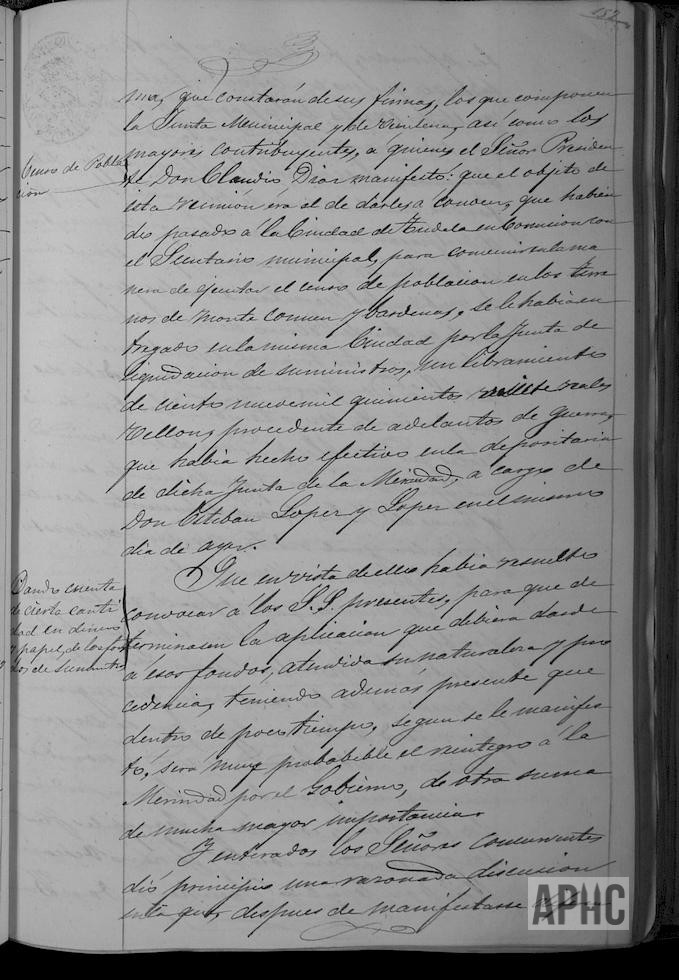 157
ma, que constarán de sus firmas, los que componen
la Junta Municipal y de Veintena, así como los
mayores contribuyentes, a quienes el Señor Presiden
te Don Claudio Diaz manifestó: que el objeto de
esta reunion era el de darles a conocer, que habien
do pasado a la Ciudad de Tudela en Comision con
el Secretario municipal, para convenir en la ma
nera de ejecutar el censo de poblacion en los térmi
nos de Monte Comun y Bardenas, se le habia en
tregado en la misma Ciudad por la Junta de
liquidacion de suministros, un libramiento
de ciento nueve mil quinientos reales
Vellon, procedente de adelantos de guerra,
que habia hecho efectivo en la depositaria
de dicha Junta de la Merindad, a cargo de
Don Esteban Lopez y Lopez en el mismo
dia de ayer.
Que en vista de ello habia resuelto
convocar á los S.S. presentes, para que de
terminasen la aplicacion que debiera darse
á esos fondos, atendida su naturaleza y pro
cedencia, teniendo además presente que
dentro de poco tiempo, segun se le manifes
tó, será muy probabible el reintegro á la
Merindad por el Gobierno, de otra suma
de mucha mayor importancia.
Y enterados los Señores concurrentes
dió principio una razonada discusion
en la que, despues de manifestarse
Censo de Pobla
cion
Dando cuenta
de cierta canti
dad en dinero
y papel, de los fon
dos de suministro
APHC